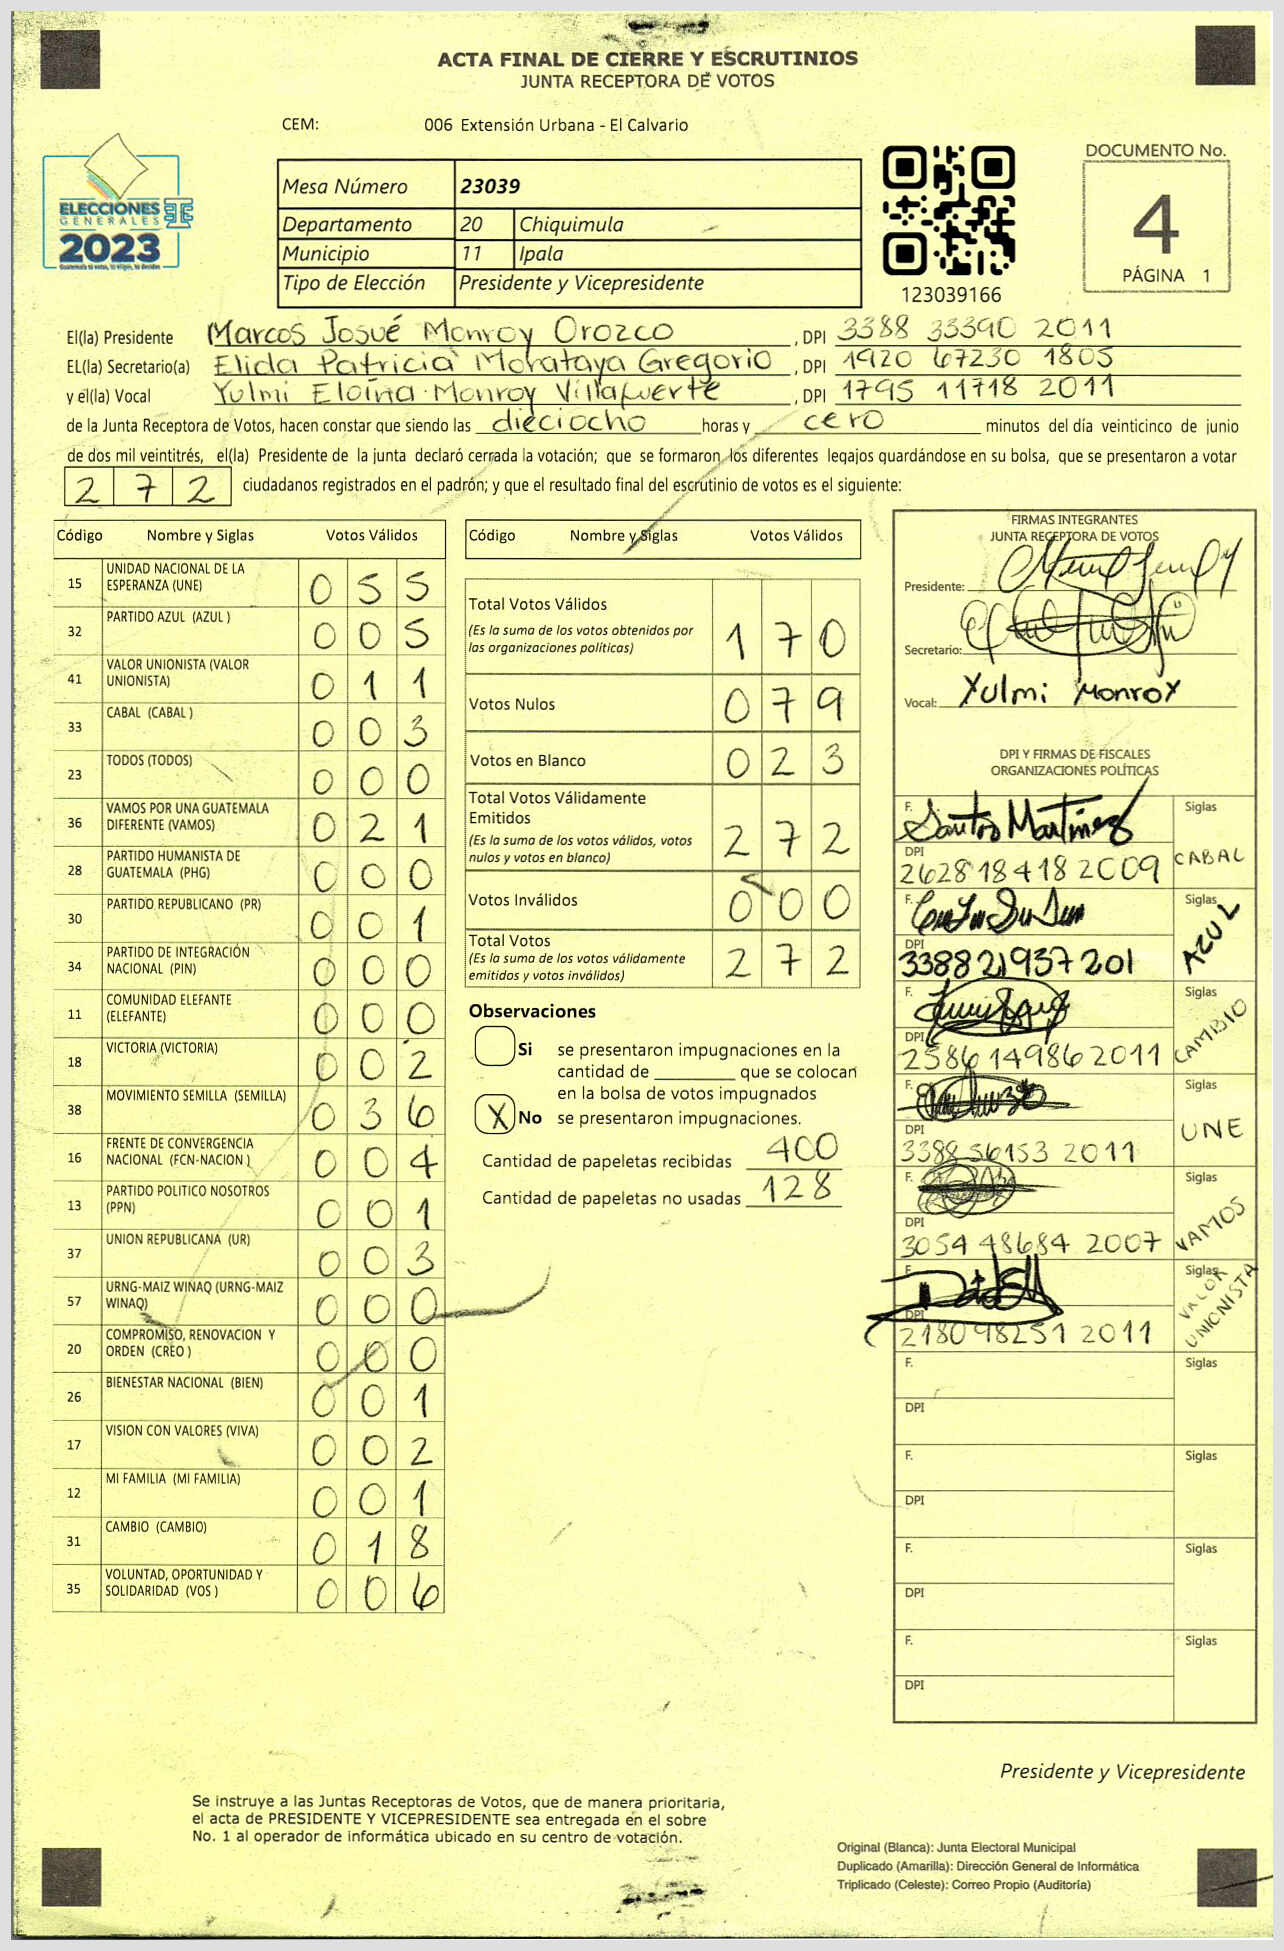 ACTA FINAL DE CIERRE Y ESCRUTINIOS
JUNTA RECEPTORA DE VOTOS
CEM: 006 Extensión Urbana - El Calvario
ELECCIONES
GENERALES
2023
Guatemala tú votas, tú eliges, tú decides
Mesa Número 23039
Departamento 20 Chiquimula
Municipio 11 Ipala
Tipo de Elección Presidente y Vicepresidente
123039166
DOCUMENTO No.
4
PÁGINA 1
El(la) Presidente Marcos Josué Monroy Orozco, DPI 3388 33390 2011
EL(la) Secretario(a) Elida Patricia Morataya Gregorio, DPI 1920 67230 1805
y el(la) Vocal Yulmi Eloína Monroy Villafuerte, DPI 1795 11718 2011
de la Junta Receptora de Votos, hacen constar que siendo las dieciocho horas y cero minutos del día veinticinco de junio
de dos mil veintitrés, el(la) Presidente de la junta declaró cerrada la votación; que se formaron los diferentes legajos quardándose en su bolsa, que se presentaron a votar
272 ciudadanos registrados en el padrón; y que el resultado final del escrutinio de votos es el siguiente:
Código Nombre y Siglas Votos Válidos
15 UNIDAD NACIONAL DE LA ESPERANZA (UNE) 055
32 PARTIDO AZUL (AZUL ) 005
41 VALOR UNIONISTA (VALOR UNIONISTA) 011
33 CABAL (CABAL ) 003
23 TODOS (TODOS) 000
36 VAMOS POR UNA GUATEMALA DIFERENTE (VAMOS) 021
28 PARTIDO HUMANISTA DE GUATEMALA (PHG) 000
30 PARTIDO REPUBLICANO (PR) 001
34 PARTIDO DE INTEGRACIÓN NACIONAL (PIN) 000
11 COMUNIDAD ELEFANTE (ELEFANTE) 000
18 VICTORIA (VICTORIA) 002
38 MOVIMIENTO SEMILLA (SEMILLA) 036
16 FRENTE DE CONVERGENCIA NACIONAL (FCN-NACION ) 004
13 PARTIDO POLITICO NOSOTROS (PPN) 001
37 UNION REPUBLICANA (UR) 003
57 URNG-MAIZ WINAQ (URNG-MAIZ WINAQ) 000
20 COMPROMISO, RENOVACION Y ORDEN (CREO ) 000
26 BIENESTAR NACIONAL (BIEN) 001
17 VISION CON VALORES (VIVA) 002
12 MI FAMILIA (MI FAMILIA) 001
31 CAMBIO (CAMBIO) 018
35 VOLUNTAD, OPORTUNIDAD Y SOLIDARIDAD (VOS ) 006
Código Nombre y Siglas Votos Válidos
Total Votos Válidos
(Es la suma de los votos obtenidos por las organizaciones políticas) 170
Votos Nulos 079
Votos en Blanco 023
Total Votos Válidamente Emitidos
(Es la suma de los votos válidos, votos nulos y votos en blanco) 272
Votos Inválidos 000
Total Votos
(Es la suma de los votos válidamente emitidos y votos inválidos) 272
Observaciones
Si se presentaron impugnaciones en la
cantidad de ________ que se colocan
en la bolsa de votos impugnados
X No se presentaron impugnaciones.
Cantidad de papeletas recibidas 400
Cantidad de papeletas no usadas 128
FIRMAS INTEGRANTES
JUNTA RECEPTORA DE VOTOS
Presidente:
Secretario:
Vocal: Yulmi Monroy
DPI Y FIRMAS DE FISCALES
ORGANIZACIONES POLÍTICAS
F. Santos Martínez Siglas
DPI 2628 18418 2009 CABAL
F. Siglas
DPI 3388 21937 201 AZUL
F. Siglas
DPI 2586 14986 2011 CAMBIO
F. Siglas
DPI 3388 36153 2011 UNE
F. Siglas
DPI 3054 48684 2007 VAMOS
F. Siglas
DPI 2180 98251 2011 VALOR UNIONISTA
F. Siglas
DPI
F. Siglas
DPI
F. Siglas
DPI
F. Siglas
DPI
Presidente y Vicepresidente
Se instruye a las Juntas Receptoras de Votos, que de manera prioritaria,
el acta de PRESIDENTE Y VICEPRESIDENTE sea entregada en el sobre
No. 1 al operador de informática ubicado en su centro de votación.
Original (Blanca): Junta Electoral Municipal
Duplicado (Amarilla): Dirección General de Informática
Triplicado (Celeste): Correo Propio (Auditoría)